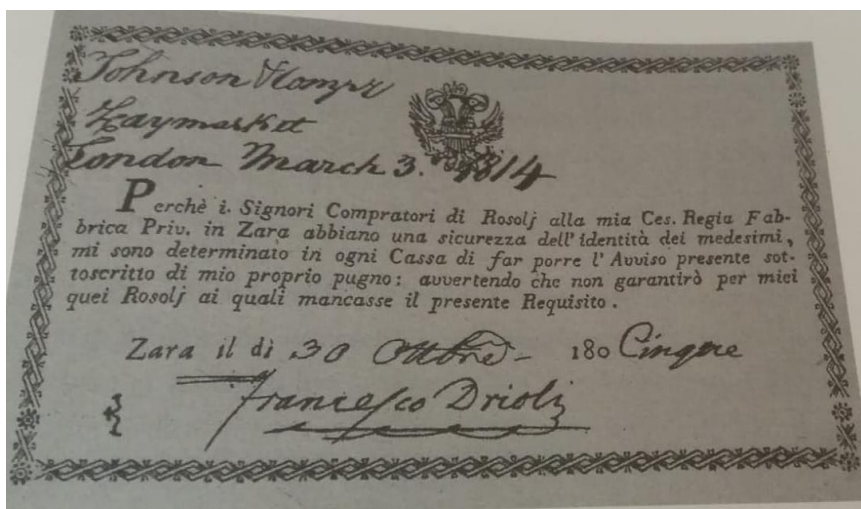 Johnson & Compy
Haymarket
London March 3. 1814
Perchè i. Signori Compratori di Rosolj alla mia Ces. Regia Fab-
brica Priv. in Zara abbiano una sicurezza dell' identità dei medesimi,
mi sono determinato in ogni Cassa di far porre l' Avviso presente sot-
toscritto di mio proprio pugno: avvertendo che non garantirò per miei
quei Rosolj ai quali mancasse il presente Requisito.
Zara il dì 30 Ottbre 180 Cinque
Francesco Drioli